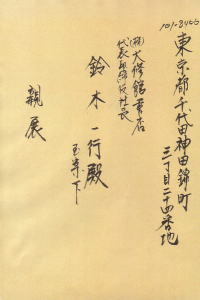 101-8466
東京都千代田神田錦町
三丁目二十四番地
(株)大修館書店
代表取締役社長
鈴木一行殿
玉案下
親展